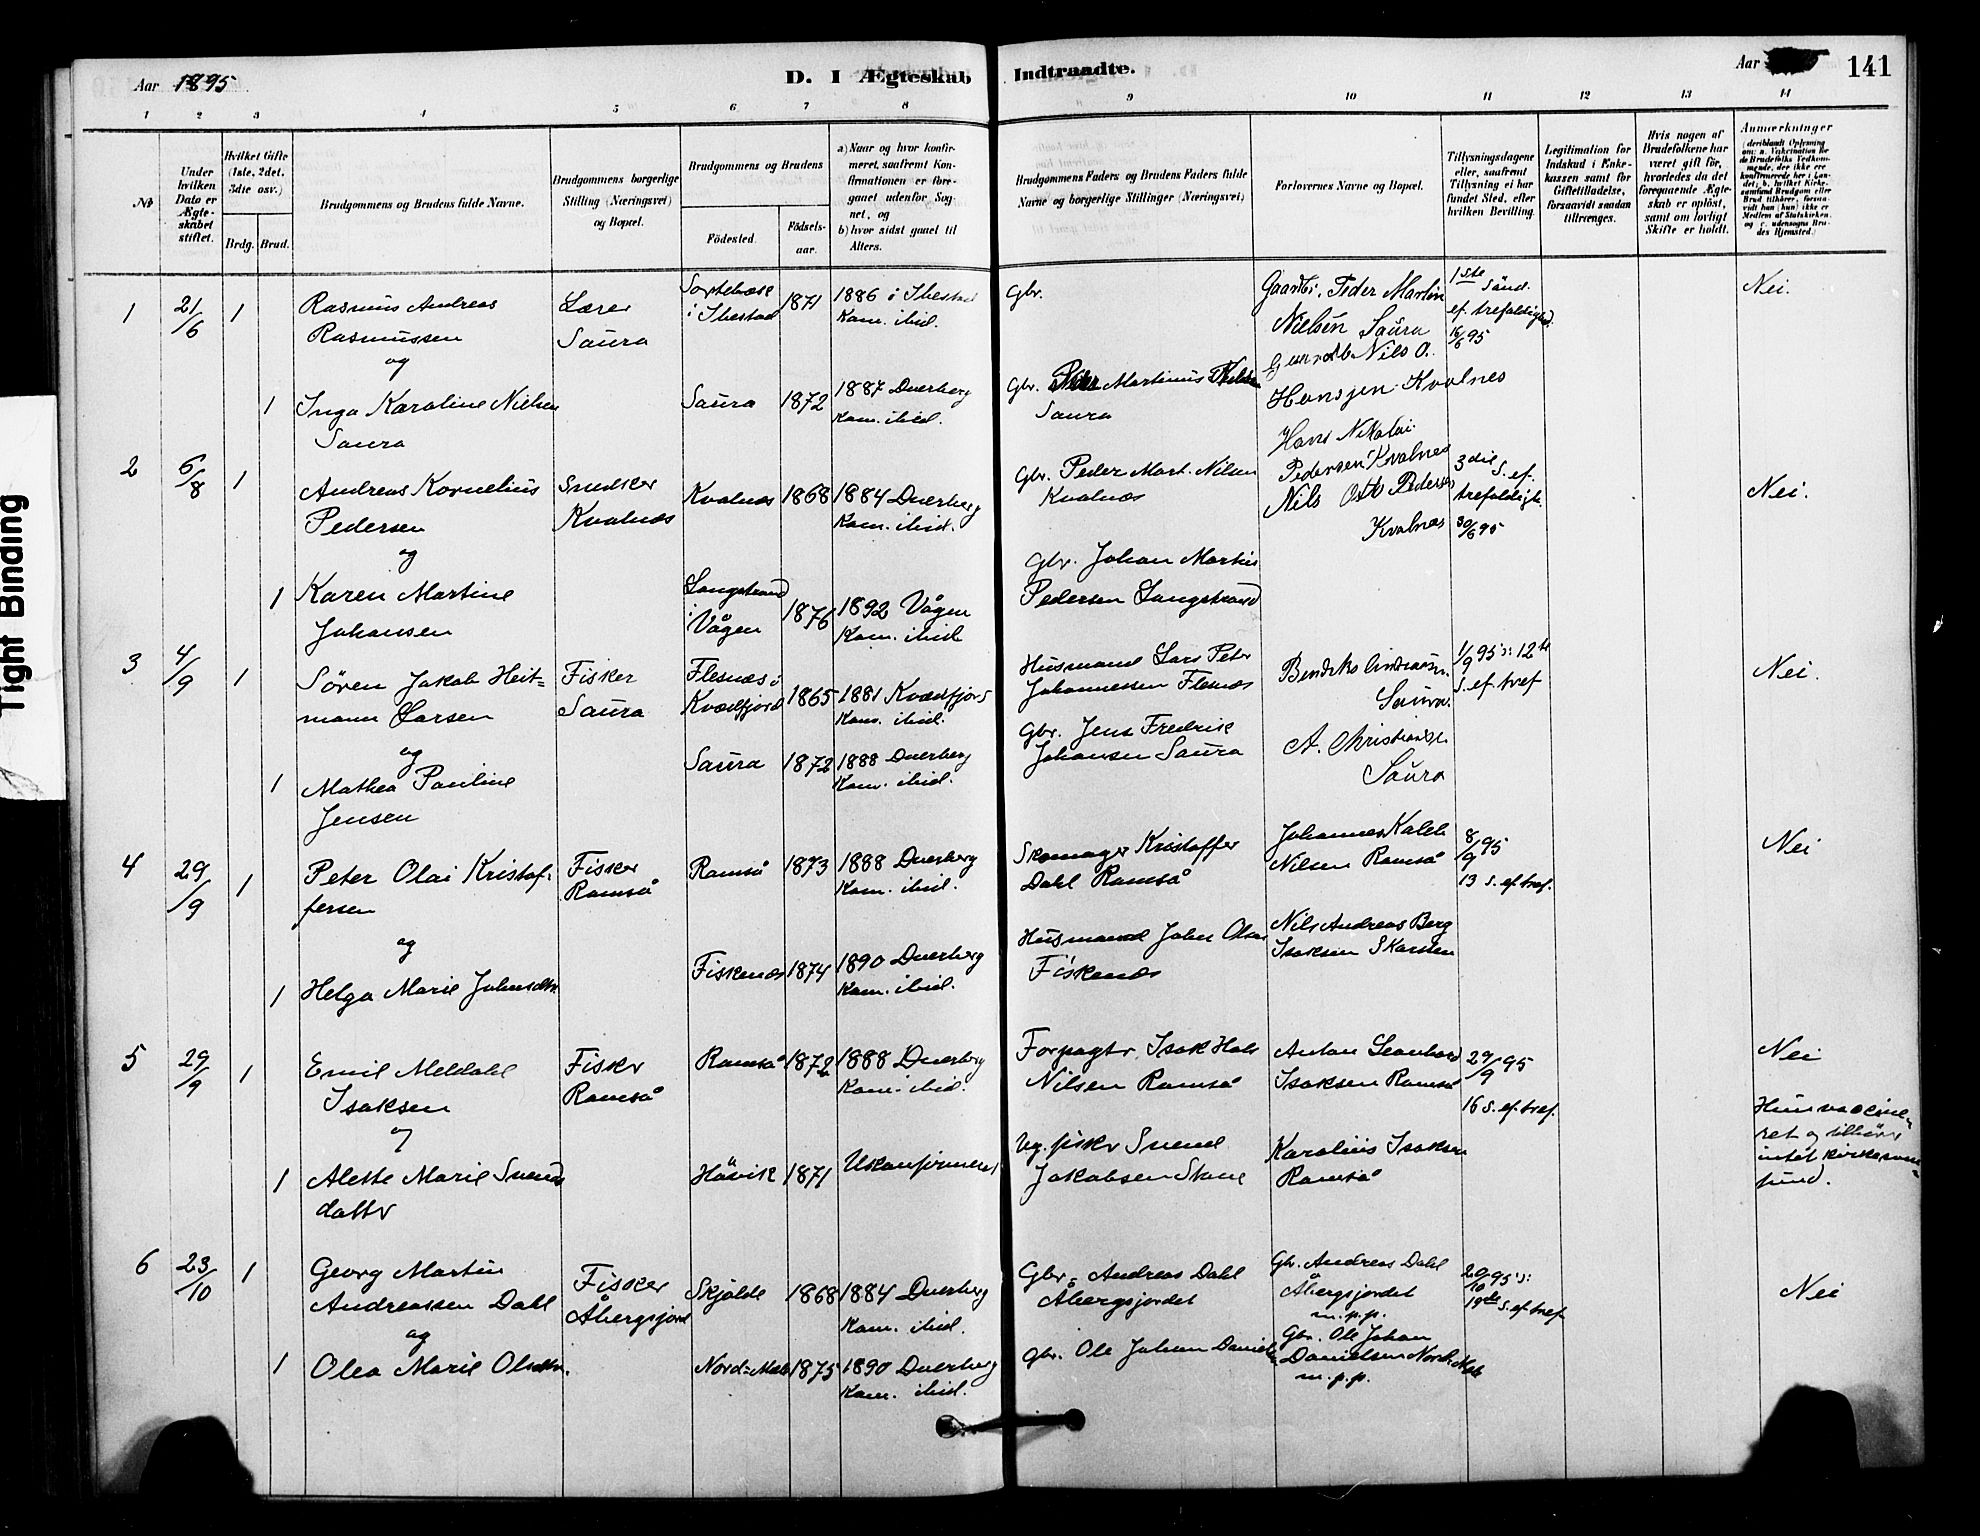 Aar 1895
D. I Ægteskab Indtraadte.
Aar
141
1 2 3 4 5 6 7 8 9 10 11 12 13 14
№
Under hvilken Dato er Ægteskabet stiftet.
Hvilket Gifte (1ste, 2det, 3die osv.)
Brdg. Brud.
Brudgommens og Brudens fulde Navne.
Brudgommens borgerlige Stilling (Næringsvei) og Bopæl.
Brudgommens og Brudens
Fødested.
Fødselsaar.
a) Naar og hvor konfirmeret, saafremt Konfirmationen er foregaaet udenfor Sognet, og
b) hvor sidst gaaet til Alters.
Brudgommens Faders og Brudens Faders fulde Navne og borgerlige Stillinger (Næringsvei)
Forlovernes Navne og Bopæl.
Tillysningsdagene eller, saafremt Tillysning ei har fundet Sted, efter hvilken Bevilling.
Legitimation for Indskud i Enkekassen samt for Giftetilladelse, forsaavidt saadan tiltrænges.
Hvis nogen af Brudefolkene har været gift før, hvorledes da det foregaaende Ægteskab er opløst, samt om lovligt Skifte er holdt.
Anmærkninger
1 21/6 1
Rasmus Andreas
Rasmussen
og
1 Inga Karoline Nielsen
Saura
Lærer
Saura
i Ibestad 1871
1886 i Ibestad
Kom. ibid.
Saura 1872
1887 Dverberg
Kom. ibid.
Gbr.
Gbr. Martinus
Saura
Gaardbr. Peder Martin
Nielsen Saura
Nils O.
Hansjen Kvalnes
1ste Sönd.
ef. trefoldighed.
16/6 95
Nei.
2 6/8 1
Andreas Kornelius
Pedersen
og
1 Karen Martine
Johansen
Snedker
Kvalnæs
Kvalnæs 1868
1884 Dverberg
Kom. ibid.
Langstrand
i Vågen 1876
1892 Vågen
Kom. ibid
Gbr. Peder Mart. Nilsen
Kvalnæs
Gbr. Johan Martin
Pedersen Langstrand
Hans Nikolai
Pedersen Kvalnes
Nils Otto Pedersen
Kvalnæs
3die S. ef.
trefoldigh.
30/6 95
Nei.
3 4/9 1
Sören Jakob Heit=
mann Larsen
og
1 Mathea Pauline
Jensen
Fisker
Saura
Flesnæs i
Kvædfjord 1865
1881 Kvædfjord
Kom. ibid.
Saura 1872
1888 Dverberg
Kom. ibid.
Husmand Lars Peter
Johannessen Flesnæs
Gbr. Jens Fredrik
Johansen Saura
Saura.
A. Christiansen
Saura
1/9 95 12te
S. ef. tref
Nei.
4 29/9 1
Peter Olai Kristof=
fersen
og
1 Helga Marie Johnsdtr
Fisker
Ramså
Ramså 1873
1888 Dverberg
Kom. ibid.
Fiskenæs 1874
1890 Dverberg
Kom. ibid.
Skomager Kristoffer
Dahl Ramså
Husmand John Olsen
Fiskenæs
Johannes Kaleb
Nilsen Ramså
Nils Andreas Berg
Isaksen Skarsten
8/9 95
13 S. ef. tref.
Nei
5 29/9 1
Emil Meldahl
Isaksen
og
1 Alette Marie Svends
datter
Fisker
Ramså
Ramså 1872
1888 Dverberg
Kom. ibid.
Håvik 1871
Ukonfirmeret
Forpagter Isak Hals
Nilsen Ramså
Ug. fisker Svend
Jakobsen
Anton Leonhard
Isaksen Ramså
Karolius Isaksen
Ramså
29/9 95
16 S. ef. tref.
Nei
Hun vaccine=
ret og tilhører
intet kirkesam=
fund.
6 23/10 1
Georg Martin
Andreassen Dahl
og
1 Olea Marie Olsdtr.
Fisker
Åbergsjord
Skjolde 1868
1884 Dverberg
Kom. ibid.
Nord=Mele 1875
1890 Dverberg
Kom. ibid.
Gbr. Andreas Dahl
Åbergsjordet
Gbr. Ole Johan Danielsen
Gbr. Andreas Dahl
Åbergsjordet
m.p.p.
Gbr. Ole Johan
Danielsen Nord-Mele
m.p.p.
20/10 95
19de S. ef. tref
Nei
Tight Binding